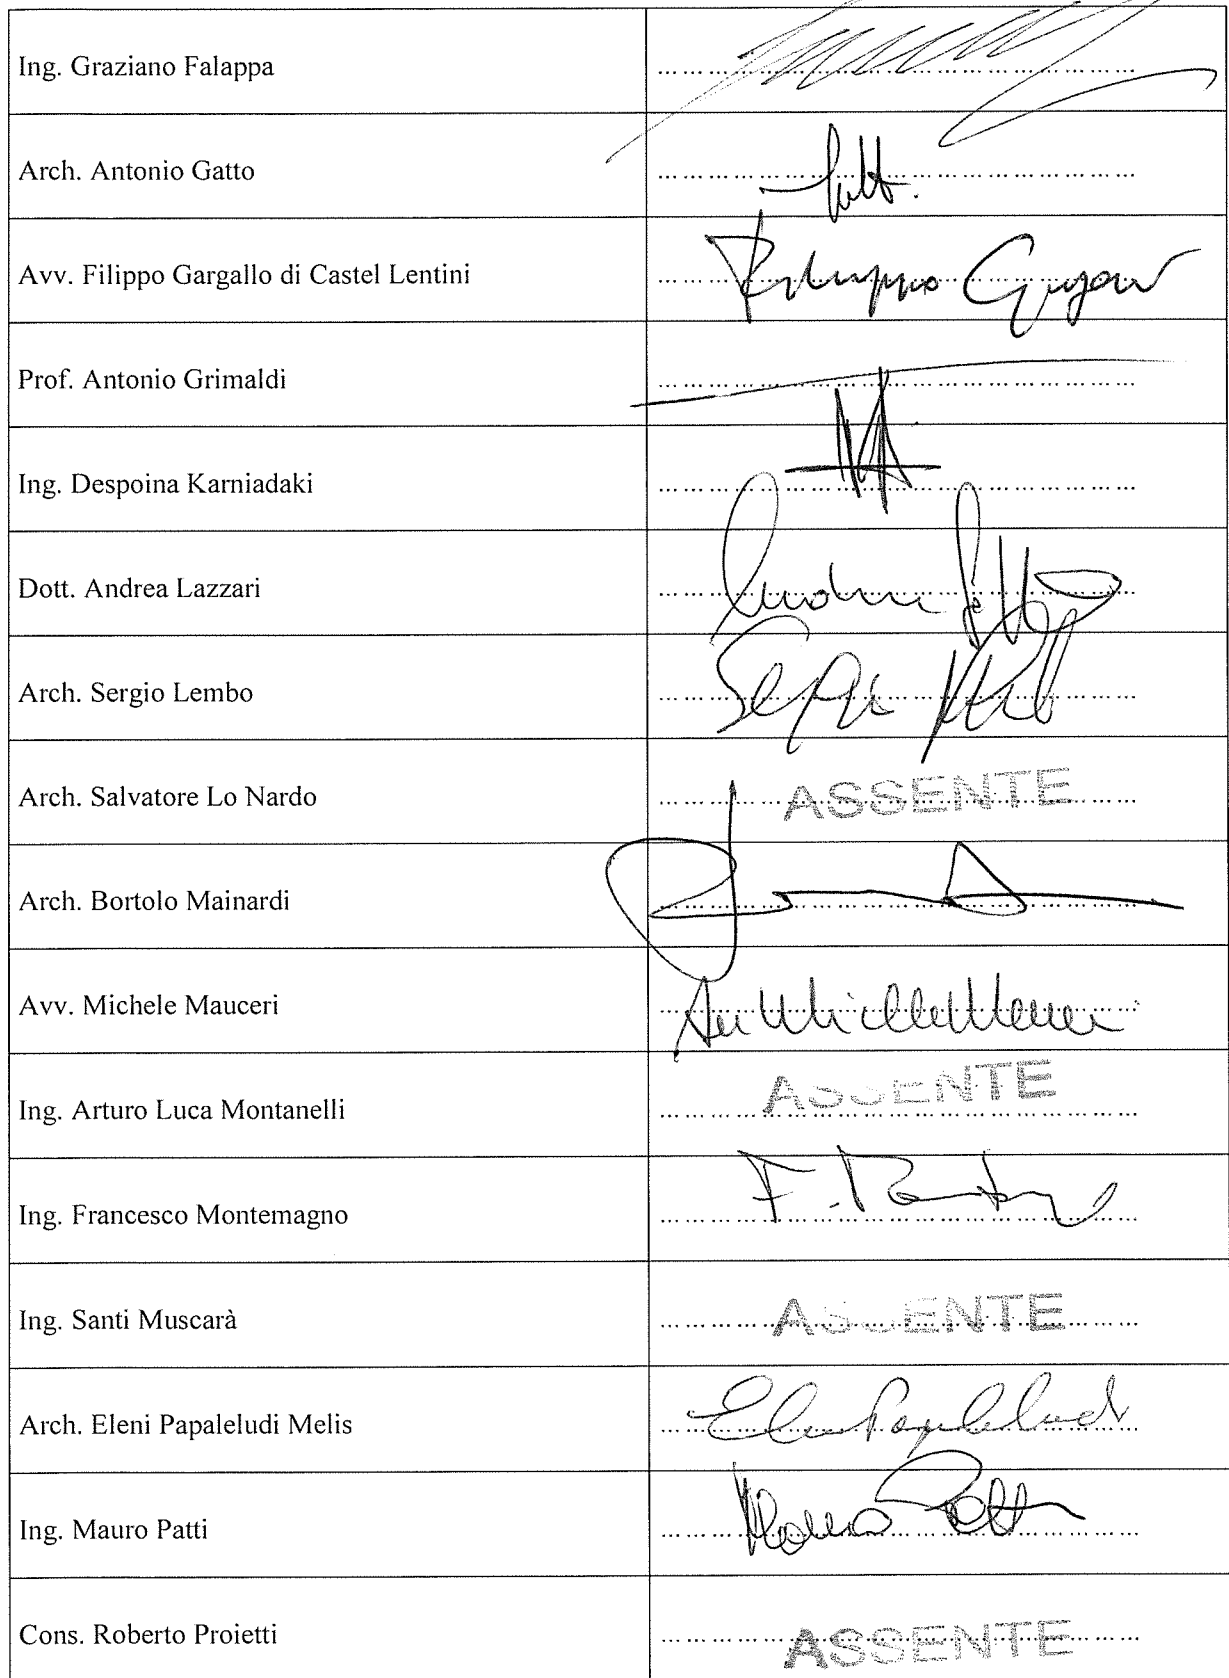 Ing. Graziano Falappa
Arch. Antonio Gatto
Avv. Filippo Gargallo di Castel Lentini
Prof. Antonio Grimaldi
Ing. Despoina Karniadaki
Dott. Andrea Lazzari
Arch. Sergio Lembo
Arch. Salvatore Lo Nardo ASSENTE
Arch. Bortolo Mainardi
Avv. Michele Mauceri
Ing. Arturo Luca Montanelli ASSENTE
Ing. Francesco Montemagno
Ing. Santi Muscarà ASSENTE
Arch. Eleni Papaleludi Melis
Ing. Mauro Patti
Cons. Roberto Proietti ASSENTE